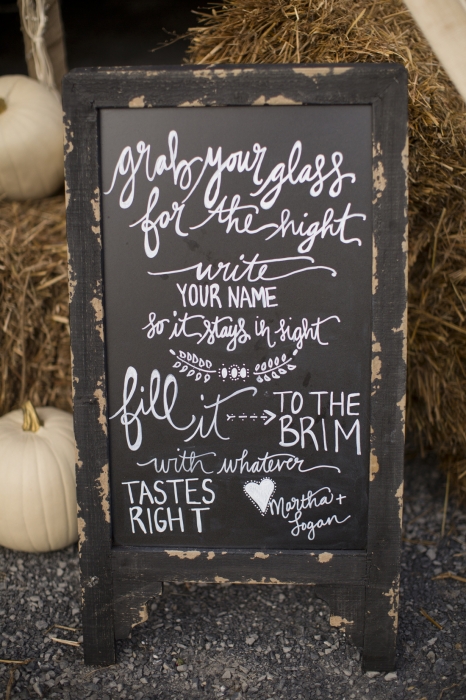 grab your glass
for the night
write
YOUR NAME
so it stays in sight
fill it TO THE
BRIM
with whatever
TASTES
RIGHT
Martha +
Logan